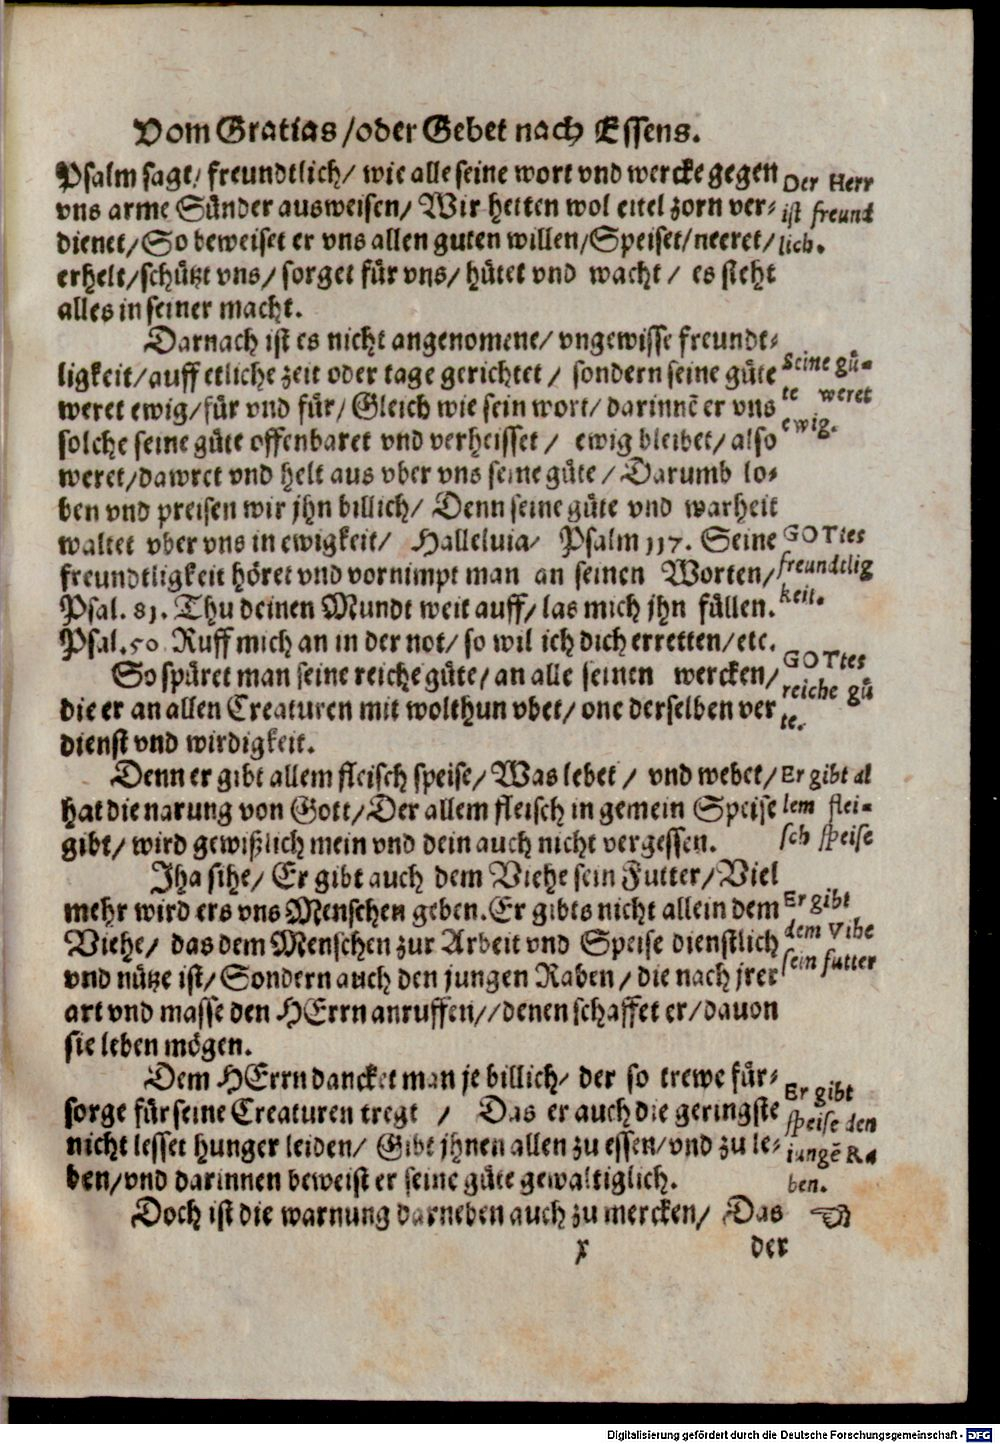 Vom Gratias/oder Gebet nach Essens.
Psalm sagt/ freundtlich/ wie alle seine wort vnd wercke gegen
vns arme Sünder ausweisen/ Wir hetten wol eitel zorn ver-
dienet/ So beweiset er vns allen guten willen/Speiset/neeret/
erhelt/schützt vns/ sorget für vns/ hütet vnd wacht/ es steht
alles in seiner macht.
Der Herr
ist freund
lich.
Darnach ist es nicht angenomene/ vngewisse freundt-
ligkeit/auff etliche zeit oder tage gerichtet/ sondern seine güte
weret ewig/für vnd für/ Gleich wie sein wort/ darinnē er vns
solche seine güte offenbaret vnd verheisset/ ewig bleibet/ also
weret/dawret vnd helt aus vber vns seine güte/ Darumb lo-
ben vnd preisen wir jhn billich/ Denn seine güte vnd warheit
waltet vber vns in ewigkeit/ Halleluia/ Psalm 117. Seine
freundtligkeit höret vnd vornimpt man an seinen Worten/
Psal. 81. Thu deinen Mundt weit auff/ las mich jhn füllen.
Psal.50. Ruff mich an in der not/ so wil ich dich erretten/etc.
Seine gü-
te weret
ewig.
GOTtes
freundtlig
keit.
So spüret man seine reiche güte/ an alle seinen wercken/
die er an allen Creaturen mit wolthun vbet/ one derselben ver
dienst vnd wirdigkeit.
GOTtes
reiche gü
te.
Denn er gibt allem fleisch speise/ Was lebet/ vnd webet/
hat die narung von Gott/ Der allem fleisch in gemein Speise
gibt/ wird gewißlich mein vnd dein auch nicht vergessen.
Er gibt al
lem flei-
sch speise
Jha sihe/ Er gibt auch dem Viehe sein Futter/ Viel
mehr wird ers vns Menschen geben. Er gibts nicht allein dem
Viehe/ das dem Menschen zur Arbeit vnd Speise dienstlich
vnd nütze ist/ Sondern auch den jungen Raben/ die nach jrer
art vnd masse den HErrn anruffen//denen schaffet er/dauon
sie leben mögen.
Er gibt
dem Vihe
sein futter
Dem HErrn dancket man je billich/ der so trewe für-
sorge für seine Creaturen tregt / Das er auch die geringste
nicht lesset hunger leiden/ Gibt jhnen allen zu essen/vnd zu le-
ben/vnd darinnen beweist er seine güte gewaltiglich.
Er gibt
speise den
iungē Ra
ben.
Doch ist die warnung darneben auch zu mercken/ Das
x der
Digitalisierung gefördert durch die Deutsche Forschungsgemeinschaft - DFG